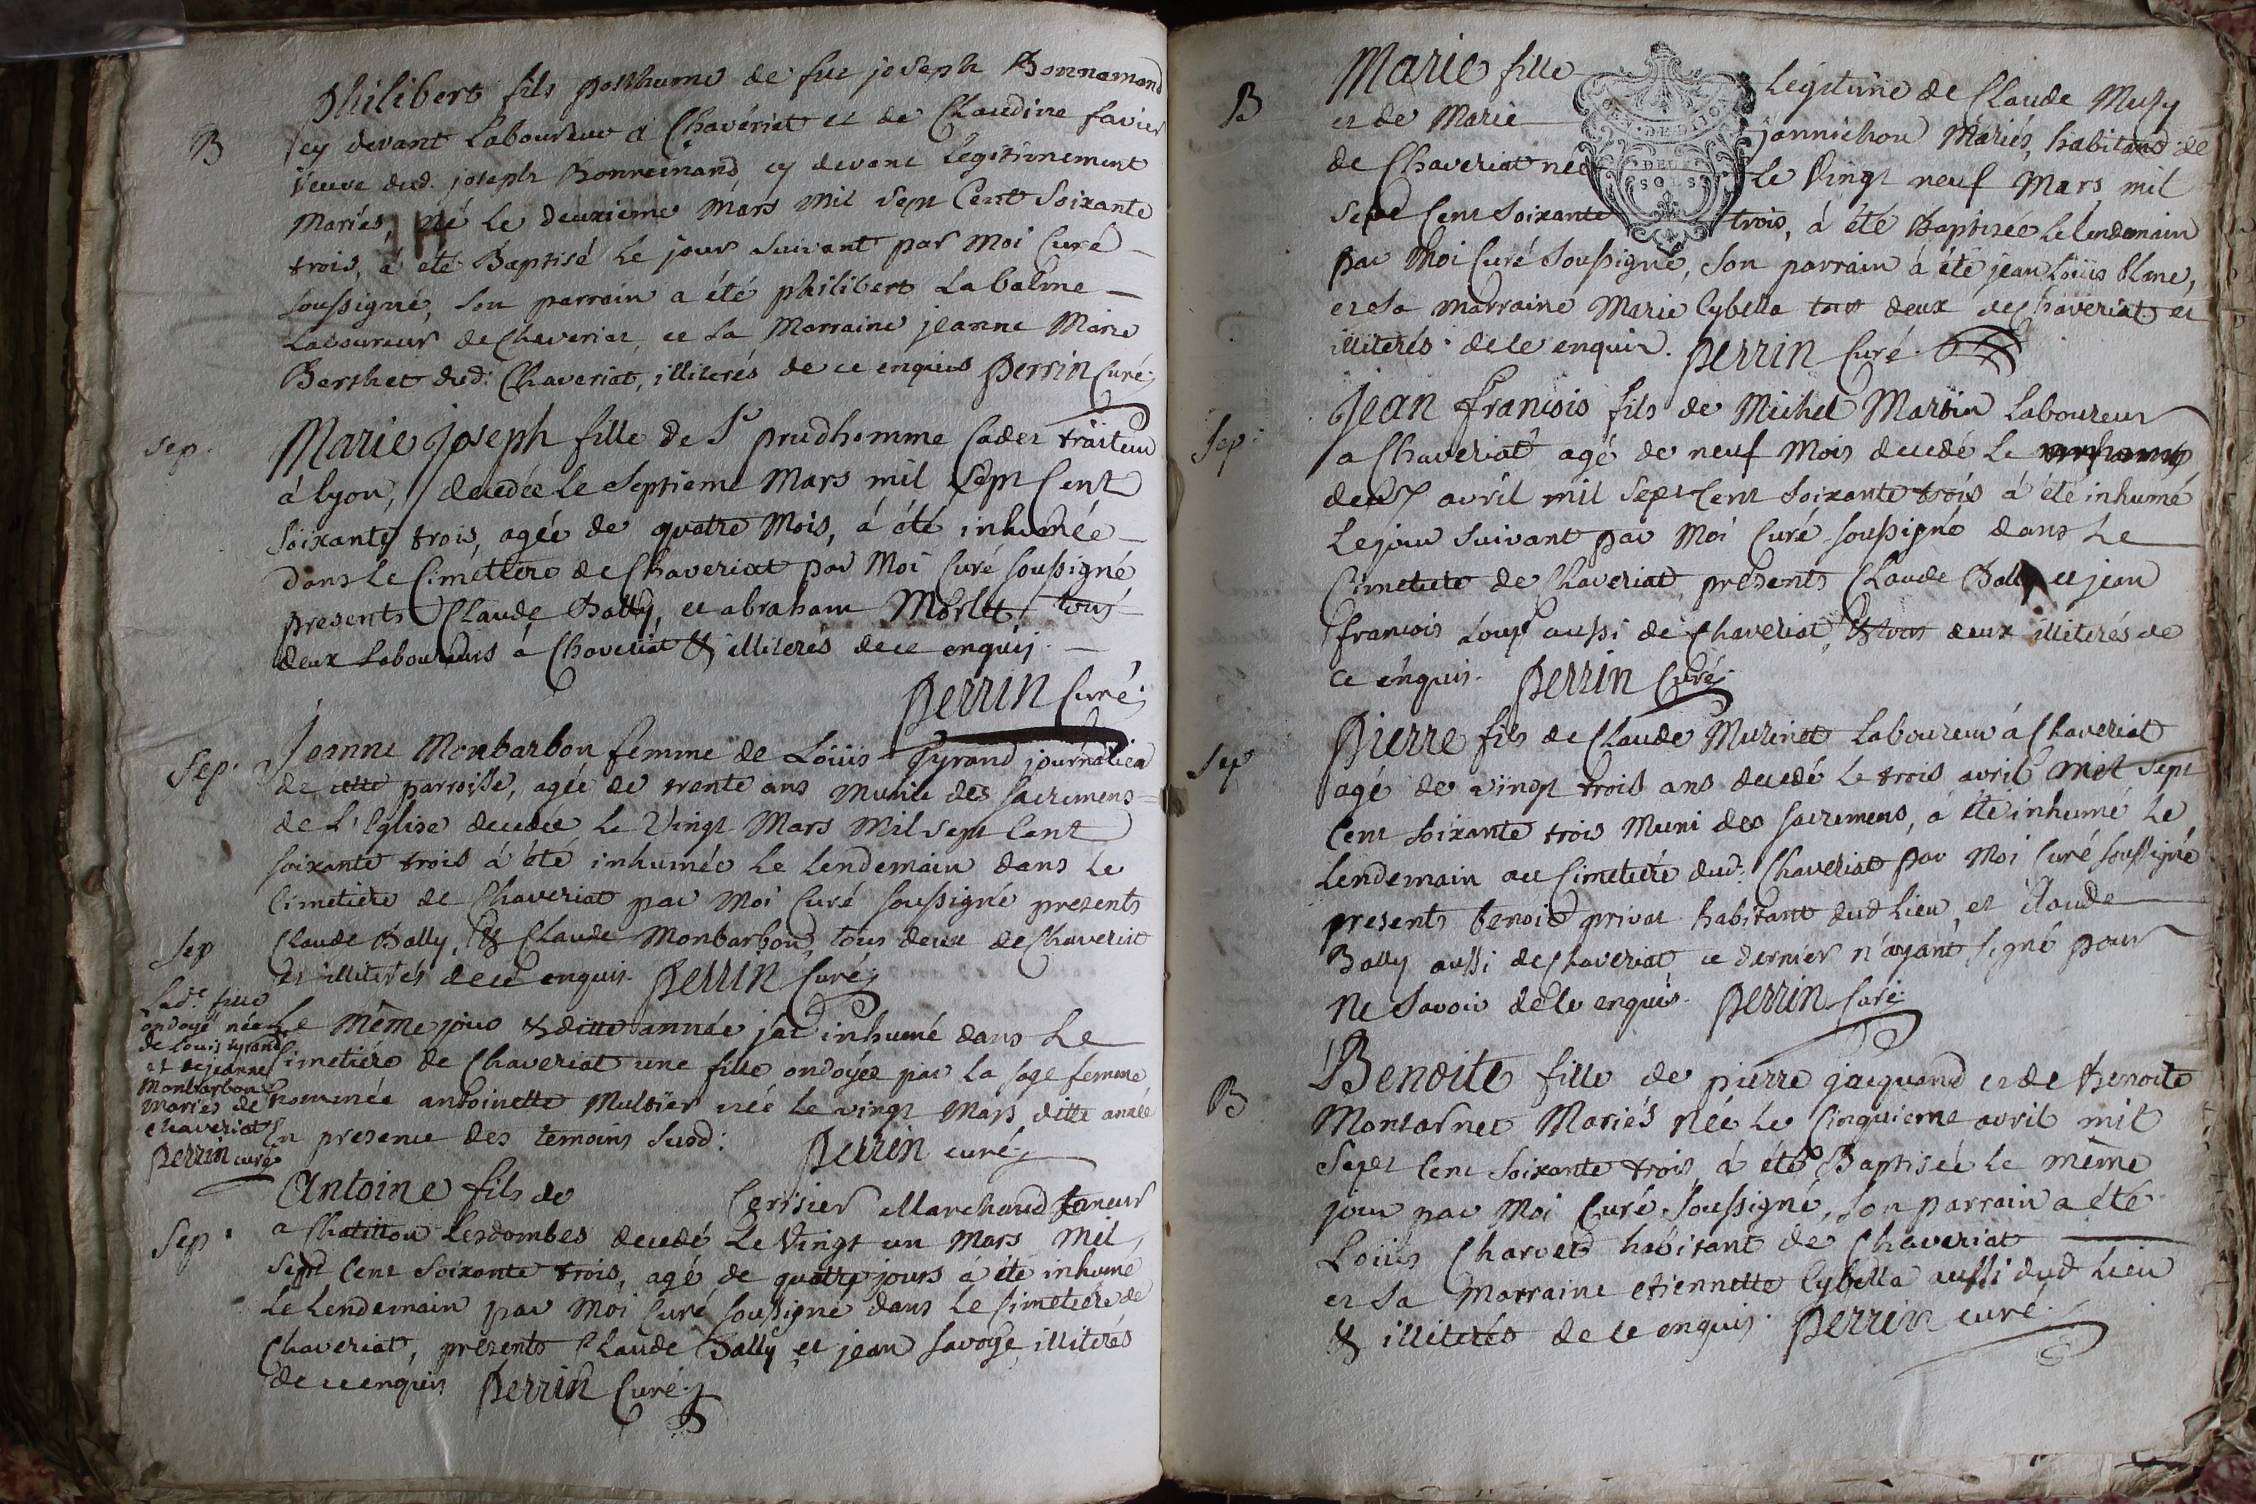 B
philibert fils posthume de feu joseph Bonnamand
cy devant Laboureur a Chavériat et de Claudine favier
veuve dud. joseph Bonnemand, cy devant legitimement
Mariés, né le deuxieme Mars Mil Sept Cent Soixante
trois, á eté Baptisé le jour Suivant par Moi Curé
soussigné, son parrain a été philibert Labalme
Laboureur de Chaveriat, et sa Marraine jeanne Marie
Berthet dud: Chaveriat, illiterés de ce enquis Perrin Curé;
sep.
Marie Joseph fille de Sr prudhomme Cadet traiteur
á lyon, decedée le Septieme Mars mil Sept Cent
Soixante trois, agée de quatre Mois, á été inhumée
dans Le Cimettere de Chaveriat par Moi Curé soussigné
presents Claude Bally, et abraham Morlet, tous
deux Laboureurs á Chaveriat & illiterés de ce enquis.
Perrin Curé;
Sep.
Jeanne Monbarbon femme de Loüis Tyrand journalier
de cette parroisse, agée de trente ans munie des sacremens
de L'Eglise decedée le Vingt Mars Mil Sept Cent
soixante trois á été inhumée le lendemain dans le
Cimetiere de Chaveriat par Moi Curé soussigné presents
Claude Bally, & Claude Monbarbon, tous deux de Chaveriat
et illiterés de ce enquis. Perrin Curé;
Sep
Lad.e fille
ondoyé née
de Louis tyrand
et de jeanne
Monbarbon
mariés de
chaveriat
Perrin curé
Le même jour & ditte année j'ai inhumé dans Le
Cimetiére de Chaveriat une fille ondoyée par la sage femme
nommée antoinette Multier née le vingt Mars ditte année
En presence des temoins Susd: Perrin curé;
Sep.
Antoine fils de Cerisier Marchand taneur
a Chatillon Lesdombes decedé Le Vingt un Mars Mil
Sept Cent Soixante trois, agé de quatre jours á été inhumé
Le Lendemain par Moi Curé soussigné dans Le Cimetiere de
Chaveriat, présents Claude Bally et jean Savoye, illiterés
de ce enquis Perrin Curé;
B
Marie fille Legitime de Claude Muzy
et de Marie jannichon Mariés, habitans de
EN. DE DIJO
DEUX
SOLS
de Chaveriat née Le Vingt neuf Mars mil
Sept Cent Soixante trois, á été Baptisée Le lendemain
par Moi Curé Soussigné, Son parrain á été jean Loüis blanc,
et sa marraine Marie Cybella tous deux de Chaveriat et
illiterés de ce enquis. Perrin Curé.
Sep.
Jean François fils de Michel Martin Laboureur
a Chaveriat agé de neuf Mois decedé Le
deux avril mil Sept Cent Soixante trois á été inhumé
Le jour Suivant par Moi Curé soussigné dans Le
Cimetiere de Chaveriat, présents Claude Bally et jean
françois Loup aussi de Chaveriat, & tous deux illiterés de
ce enquis. Perrin Curé;
Sep
Pierre fils de Claude Murinet Laboureur á Chaveriat
agé de vingt trois ans decedé Le trois avril Mil Sept
Cent Soixante trois Muni des sacremens, á été inhumé Le
Lendemain au Cimetiére dud: Chaveriat par Moi Curé soussigné
presents benoit privat habitant dud Lieu, et Claude
Bally aussi de Chaveriat, ce dernier n'ayant signé pour
Ne Savoir de ce enquis. Perrin Curé
B
Benoite fille de pierre jacquand et de Benoite
Montarnet Mariés née Le Cinquieme avril mil
Sept Cent Soixante trois, á été Baptisée le même
jour par Moi Curé Soussigné, Son parrain a été
Loüis Charvet habitant de Chaveriat
et Sa Marraine etiennette Cybella aussi dud Lieu
& illiterés de ce enquis. Perrin curé.